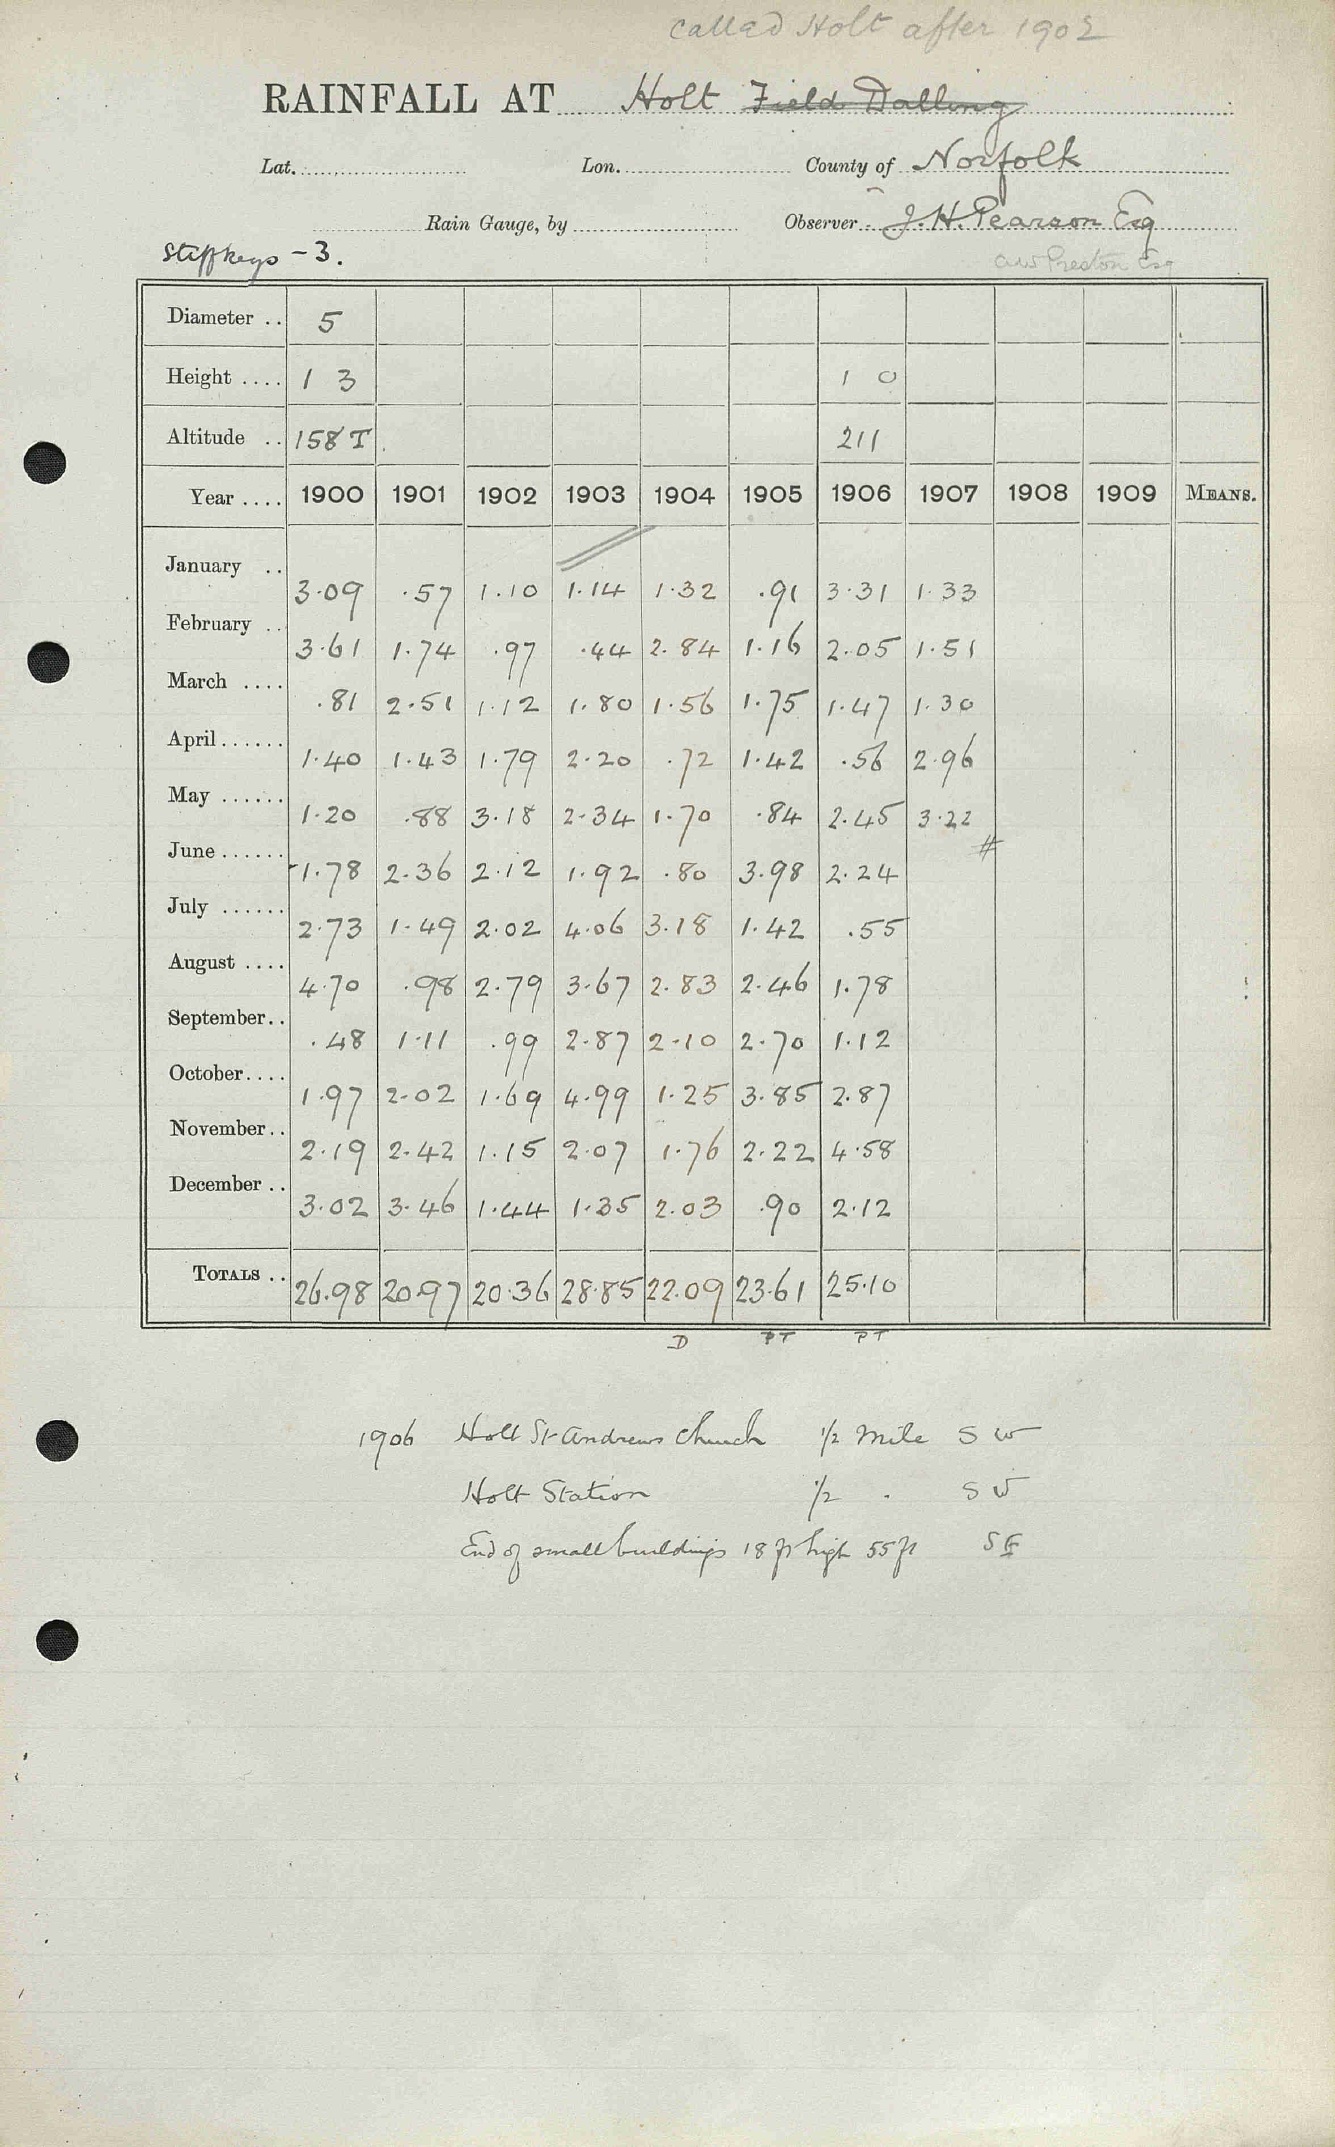 called Holt after 1902
RAINFALL AT Holt Field Dalling
Lat. Lon. County of Norfolk
Rain Gauge, by Observer J. H. Pearson Esq
Stiffkeys - 3. A W Preston Esq
Diameter .. 5
Height .... 1 3 1 0
Altitude .. 158 T 211
Year .... 1900 1901 1902 1903 1904 1905 1906 1907 1908 1909 MEANS.
January .. 3.09 .57 1.10 1.14 1.32 .91 3.31 1.33
February .. 3.61 1.74 .97 .44 2.84 1.16 2.05 1.51
March .... .81 2.51 1.12 1.80 1.56 1.75 1.47 1.30
April...... 1.40 1.43 1.79 2.20 .72 1.42 .56 2.96
May ...... 1.20 .88 3.18 2.34 1.70 .84 2.45 3.22
June...... 1.78 2.36 2.12 1.92 .80 3.98 2.24
July ...... 2.73 1.49 2.02 4.06 3.18 1.42 .55
August .... 4.70 .98 2.79 3.67 2.83 2.46 1.78
September.. .48 1.11 .99 2.87 2.10 2.70 1.12
October.... 1.97 2.02 1.69 4.99 1.25 3.85 2.87
November.. 2.19 2.42 1.15 2.07 1.76 2.22 4.58
December .. 3.02 3.46 1.44 1.35 2.03 .90 2.12
TOTALS .. 26.98 20.97 20.36 28.85 22.09 23.61 25.10
D PT PT
1906 Holt St Andrews Church 1/2 mile S W
Holt Station 1/2 . S W
End of small buildings 18 ft high 55 ft S E